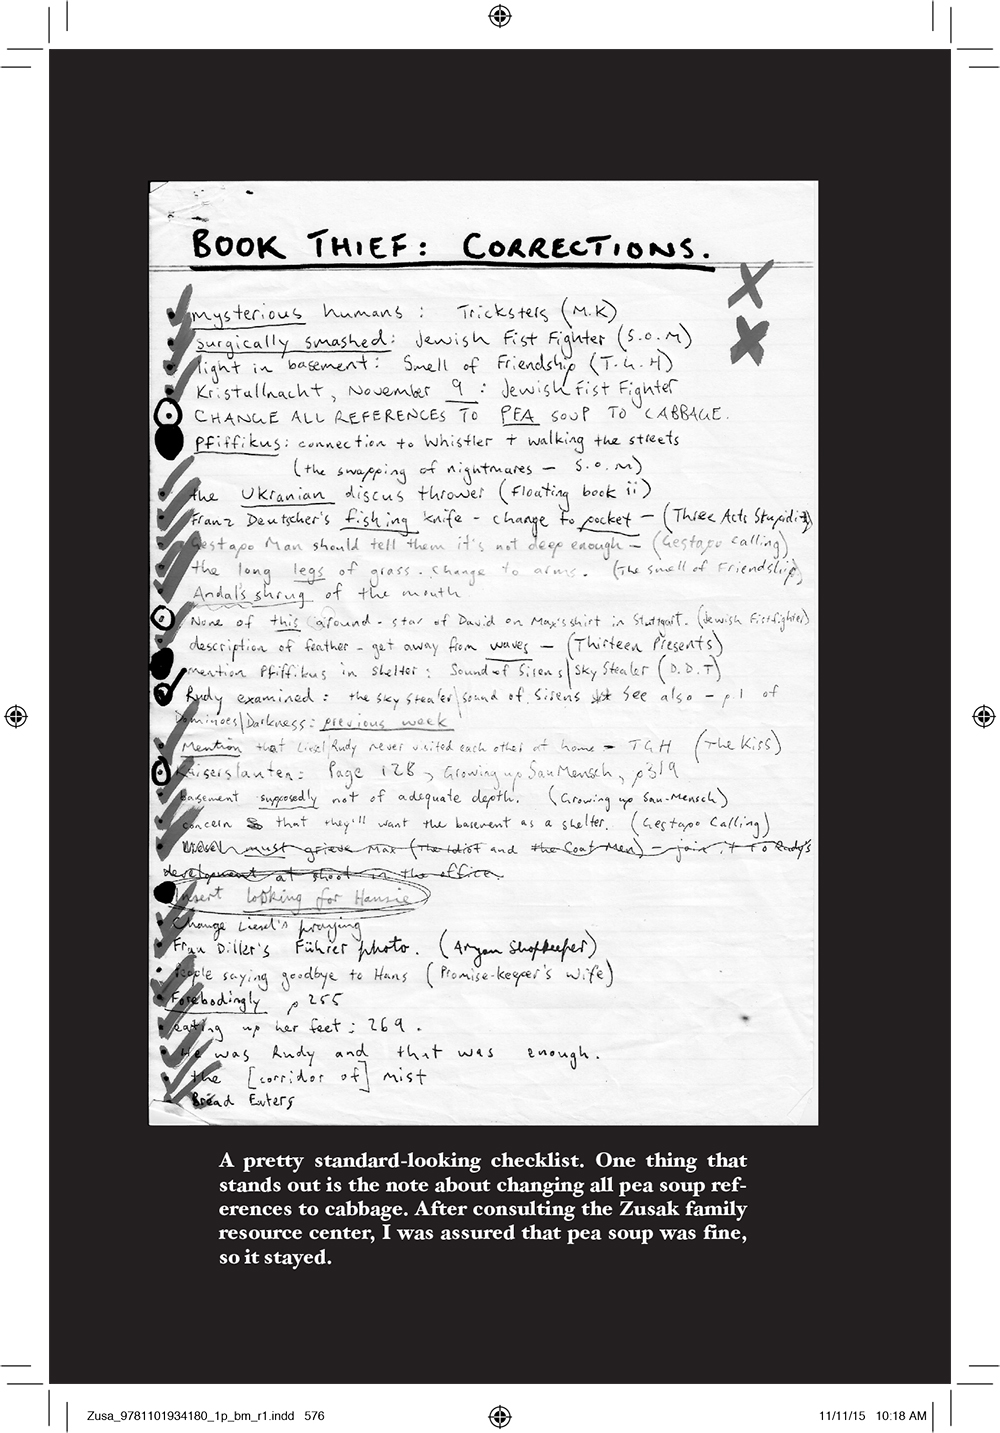 BOOK THIEF: CORRECTIONS.
mysterious humans: Tricksters (M.K)
surgically smashed: Jewish Fist Fighter (S.O.M)
light in basement: Smell of Friendship (T.G.H)
Kristallnacht, November 9: Jewish Fist Fighter
CHANGE ALL REFERENCES TO PEA SOUP TO CABBAGE.
Pfiffikus: connection to Whistler + walking the streets
(the swapping of nightmares - S.O.M)
the Ukranian discus thrower (Floating book ii)
Franz Deutscher's fishing knife - change to pocket - (Three Acts Stupidity)
Gestapo Man should tell them it's not deep enough - (Gestapo Calling)
the long legs of grass. Change to arms. (The Smell of Friendship)
Andal's shrug of the mouth
None of this around - star of David on Max's shirt in Stuttgart. (Jewish Fistfighter)
description of feather - get away from waves - (Thirteen Presents)
mention Pfiffikus in shelter: Sound of Sirens/Sky Stealer (D.D.T)
Rudy examined: the Sky Stealer/sound of Sirens See also - p.1 of
Dominoes/Darkness: previous week
Mention that Liesel/Rudy never visited each other at home - TGH (The Kiss)
Kaiserslauten: Page 128, Growing up SauMensch, p319
basement supposedly not of adequate depth. (Growing up Sau-Mensch)
concern that they'll want the basement as a shelter. (Gestapo Calling)
Liesel must grieve Max (The Idiot and the Coat Men) - join it to Rudy's
development at shoot in the office.
Insert looking for Hansie
Change Liesel's praying
Frau Diller's Führer photo. (Aryan Shopkeeper)
People saying goodbye to Hans (Promise-keeper's Wife)
Forebodingly p 255
eating up her feet: 269.
He was Rudy and that was enough.
the [corridor of] mist
Bread Eaters
A pretty standard-looking checklist. One thing that
stands out is the note about changing all pea soup ref-
erences to cabbage. After consulting the Zusak family
resource center, I was assured that pea soup was fine,
so it stayed.
Zusa_9781101934180_1p_bm_r1.indd 576
11/11/15 10:18 AM